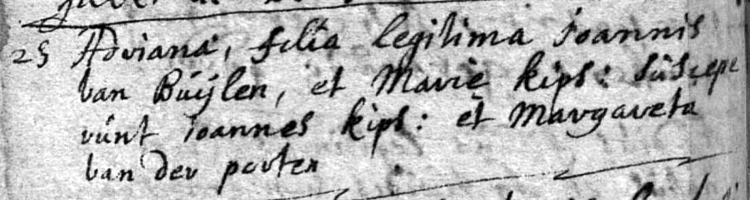 25 Adriana, filia legitima Joannis
van Buÿlen, et Marie kips: suscepe
runt ioannes kips: et Margareta
van der porten